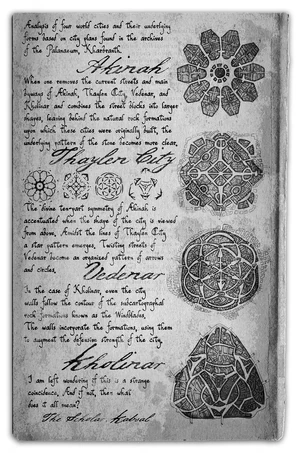 Analysis of four world cities and their underlying
forms based on city plans found in the archives
of the Palanaeum, Kharbranth.
Akinah
When one removes the current streets and main
byways of Akinah, Thaylen City, Vedenar, and
Kholinar and combines the street blocks into larger
shapes, leaving behind the natural rock formations
upon which these cities were originally built, the
underlying pattern of the stone becomes more clear.
Thaylen City
The divine ten-part symmetry of Akinah is
accentuated when the shape of the city is viewed
from above. Amidst the lines of Thaylen City
a star pattern emerges. Twisting streets of
Vedenar become an organized pattern of arrows
and circles.
Vedenar
In the case of Kholinar, even the city
walls follow the contour of the subcartographal
rock formations known as the Windblades.
The walls incorporate the formations, using them
to augment the defensive strength of the city.
Kholinar
I am left wondering if this is a strange
coincidence. And if not, then what
does it all mean?
The Scholar, Kabsal